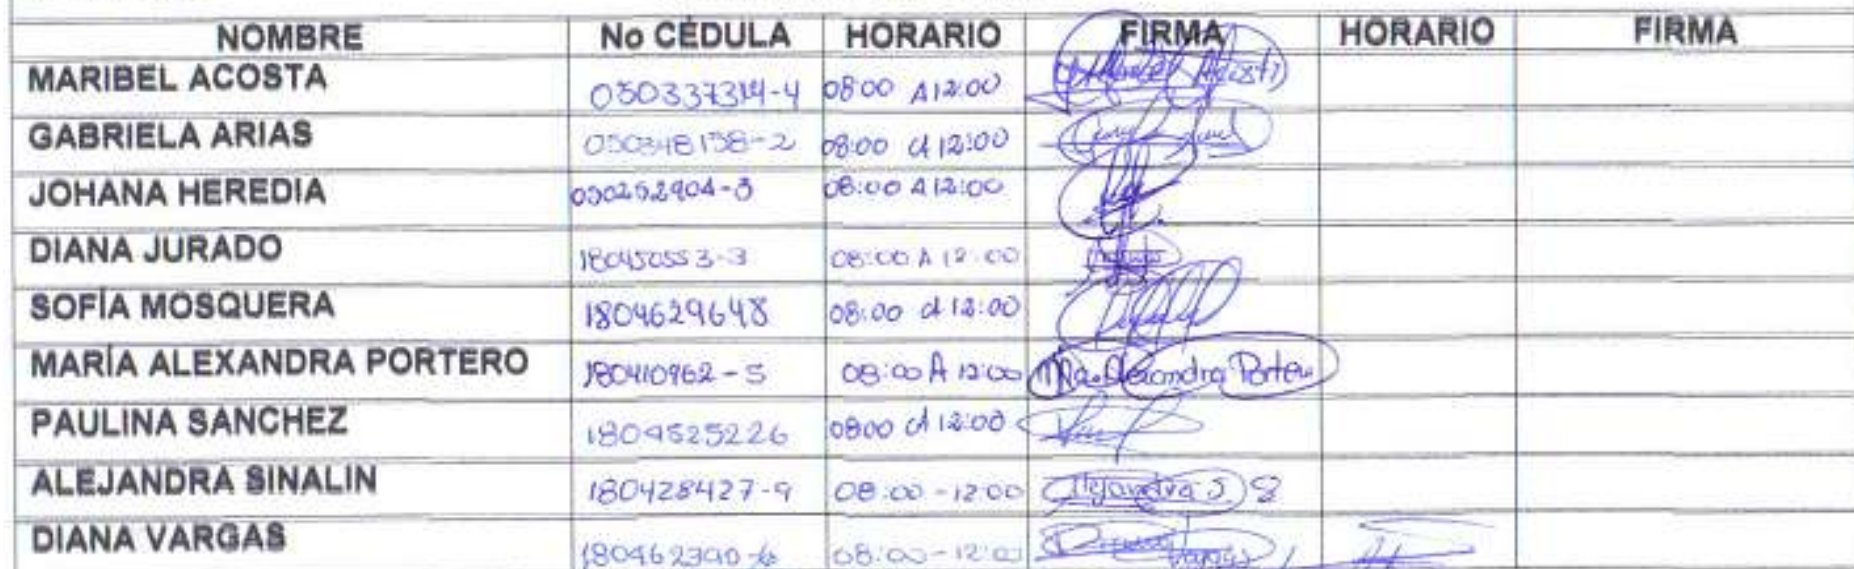 NOMBRE No CÉDULA HORARIO FIRMA HORARIO FIRMA
MARIBEL ACOSTA 050337314-4 0800 A 12:00 Maribel Acosta
GABRIELA ARIAS 050348158-2 08:00 a 12:00
JOHANA HEREDIA 050252904-3 08:00 A 12:00
DIANA JURADO 180450553-3 08:00 A 12:00
SOFÍA MOSQUERA 1804629648 08:00 a 12:00
MARÍA ALEXANDRA PORTERO 180410962-5 08:00 A 12:00 Ma. Alexandra Portero
PAULINA SANCHEZ 1804525226 0800 a 12:00
ALEJANDRA SINALIN 180428427-9 08:00 - 12:00 Alejandra S.
DIANA VARGAS 180462390-6 08:00 - 12:00 Vargas